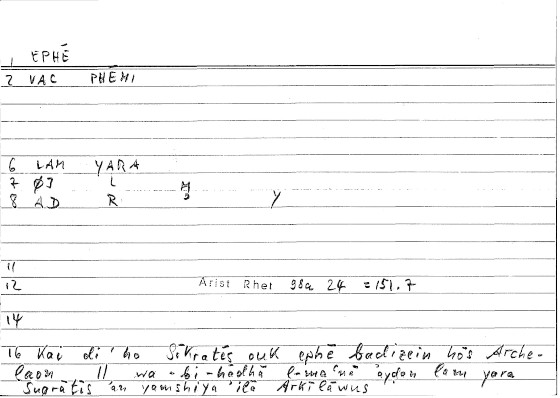 1 EPHĒ
2 VAC PHĒMI
6 LAM YARA
7 ØJ L
8 AD R Y
11
12 Arist Rhet 98a 24 = 151.7
14
16 Kai di' ho Sōkratēs ouk ephē badizein hōs Arche-
laon // wa-bi-hādhā l-ma'nā 'aydan lam yara
Suqrātīs 'an yamshiya 'ilā Arkilāwus